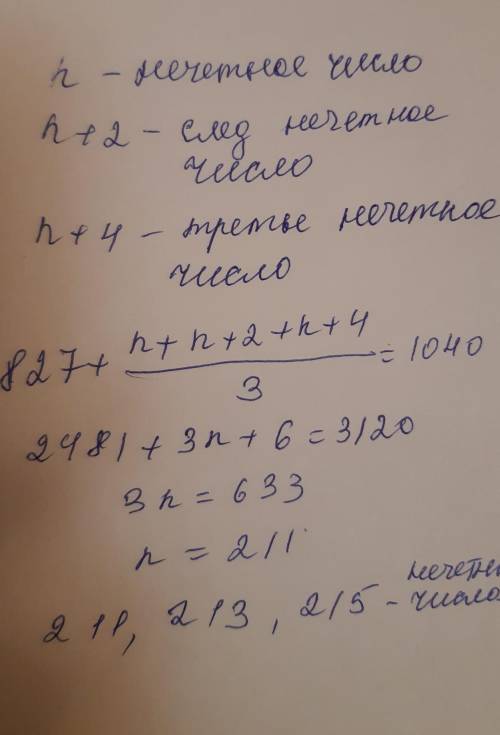 n – нечетное число
n+2 – след нечетное
число
n+4 – третье нечетное
число
827+ (n+n+2+n+4)/3 = 1040
2481+3n+6=3120
3n=633
n=211
211, 213, 215 – нечетн
число